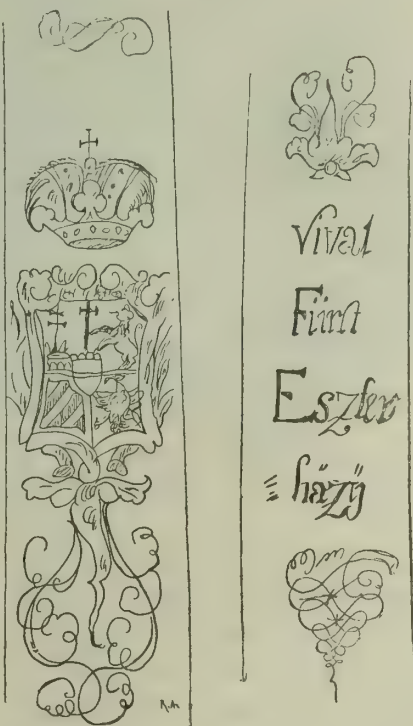 Vivat
Fürst
Eszter
häzÿ
R.A.